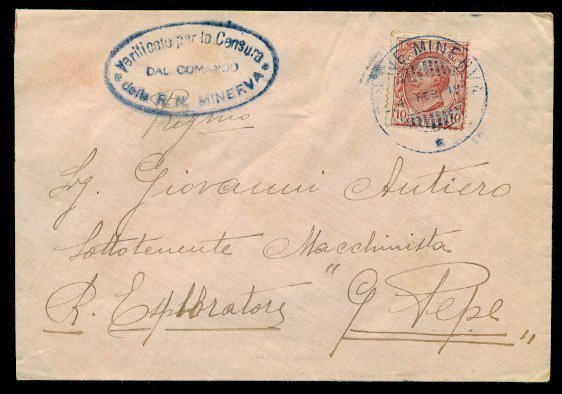 Verificato per la Censura
DAL COMANDO
della R. N. MINERVA
NAVE MINERVA
10 10
Sig. Giovanni Autiero
Sottotenente Macchinista
R. Esploratore "G. Pepe"